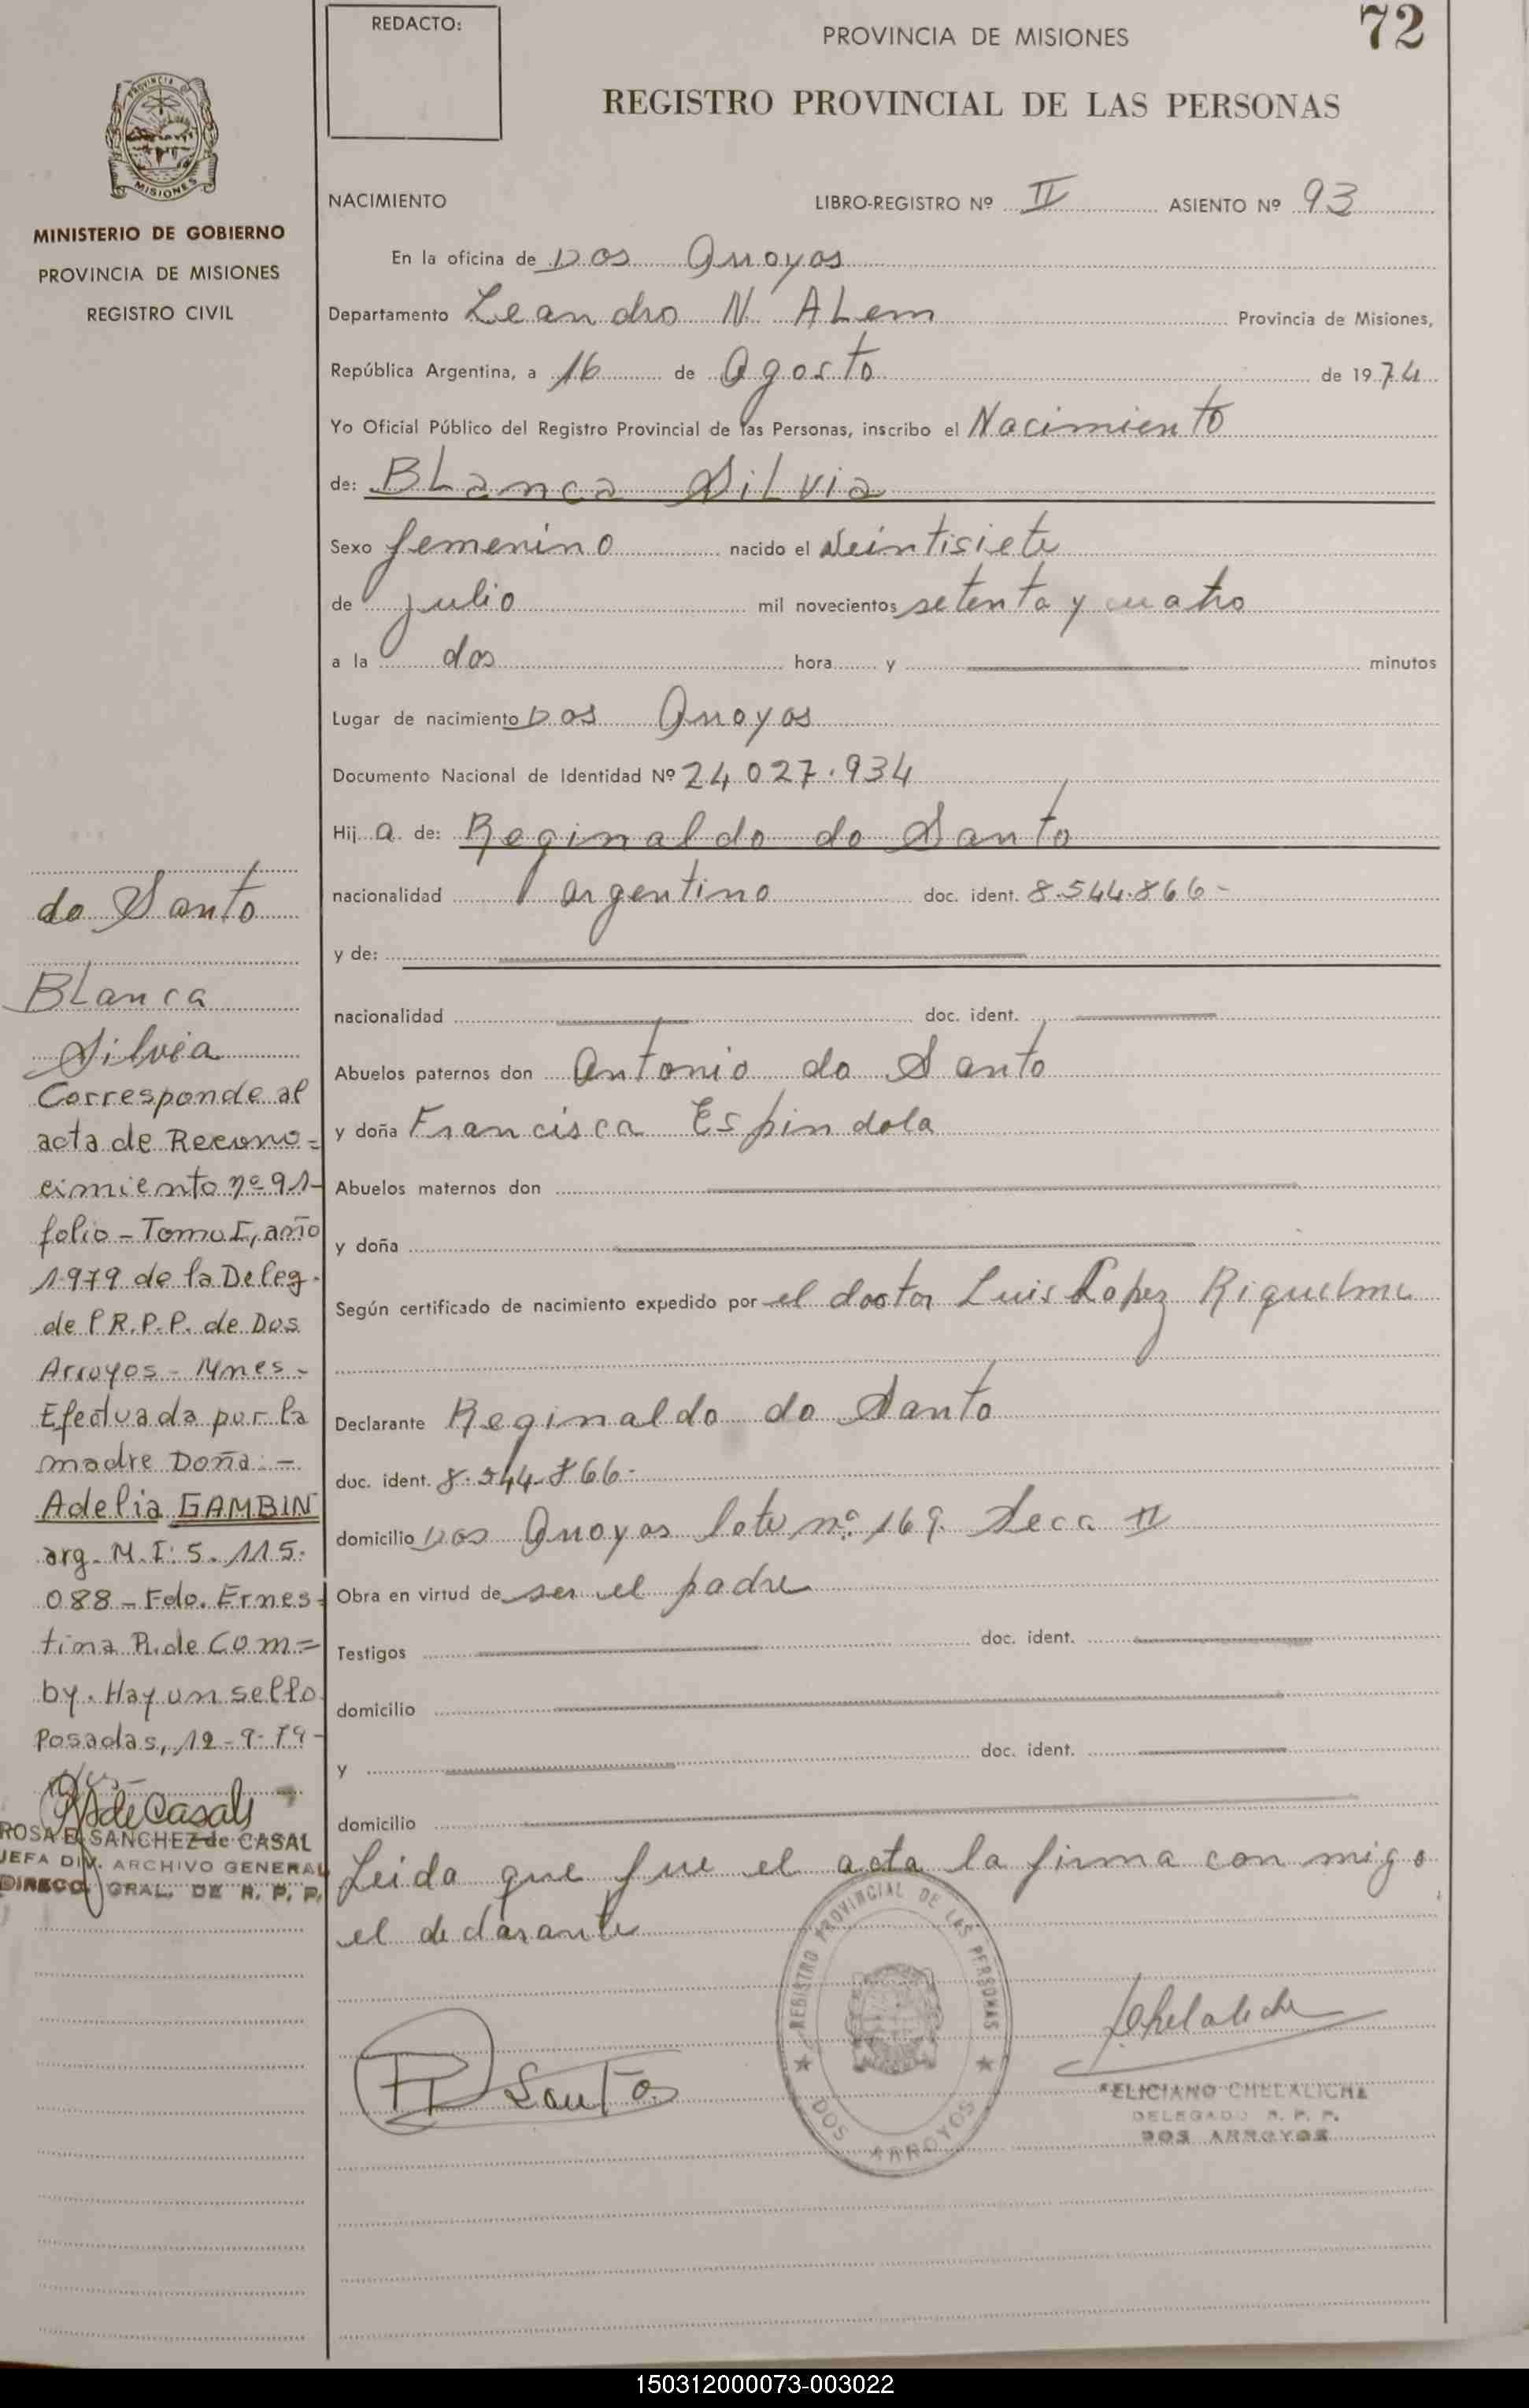 REDACTO:
PROVINCIA DE MISIONES
72
REGISTRO PROVINCIAL DE LAS PERSONAS
PROVINCIA DE
MISIONES
MINISTERIO DE GOBIERNO
PROVINCIA DE MISIONES
REGISTRO CIVIL
NACIMIENTO LIBRO-REGISTRO Nº II ASIENTO Nº 93
En la oficina de Dos Arroyos
Departamento Leandro N. ALem Provincia de Misiones,
República Argentina, a 16 de Agosto de 1974
Yo Oficial Público del Registro Provincial de las Personas, inscribo el Nacimiento
de: BLanca SiLvia
Sexo femenino nacido el Veintisiete
de julio mil novecientos setenta y cuatro
a la dos hora y minutos
Lugar de nacimiento Dos Arroyos
Documento Nacional de Identidad Nº 24.027.934
Hij a de: Reginaldo do Santo
nacionalidad argentino doc. ident. 8.544.866-
y de:
nacionalidad doc. ident.
Abuelos paternos don Antonio do Santo
y doña Francisca Espindola
Abuelos maternos don
y doña
Según certificado de nacimiento expedido por el doctor Luis Lopez Riquelme
Declarante Reginaldo do Santo
doc. ident. 8.544.866-
domicilio Dos Arroyos lote nº 169 Secc II
Obra en virtud de ser el padre
Testigos doc. ident.
domicilio
y doc. ident.
domicilio
Leida que fue el acta la firma con migo
el declarante
do Santo
BLanca
Silvia
Corresponde al
acta de Recono=
cimiento nº 91-
folio - Tomo I, año
1979 de la Deleg.
de l R.P.P. de Dos
Arroyos - Mnes-
Efectuada por la
madre Doña: -
Adelia GAMBIN
arg. M.I: 5.115.
088 - Fdo. Ernes-
tina R. de Com=
by. Hay un sello
Posadas, 12-9-79-
R S de Casals
ROSA E. SANCHEZ de CASAL
JEFA DIV. ARCHIVO GENERAL
DIRECC. GRAL. DE R. P. P.
Santo
REGISTRO PROVINCIAL DE LAS PERSONAS
DOS ARROYOS
Chelaliche
FELICIANO CHELALICHE
DELEGADO R. P. P.
DOS ARROYOS
150312000073-003022